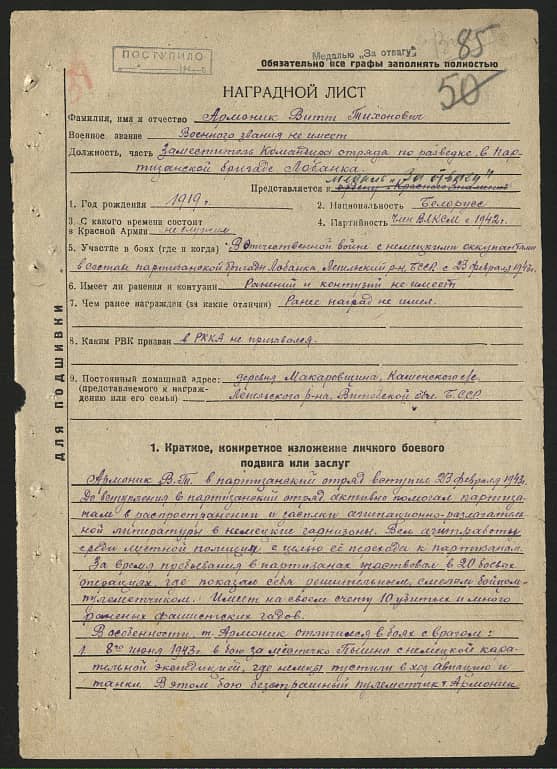 ПОСТУПИЛО
Медалью „За отвагу"
85
Обязательно все графы заполнять полностью
50
НАГРАДНОЙ ЛИСТ
Фамилия, имя и отчество Армоник Витт Тихонович
Военное звание Военного звания не имеет
Должность, часть Заместитель Командира отряда по разведке в пар-
тизанской бригаде Лобанка.
медаль „За отвагу"
Представляется к ордену „Красного Знамени"
1. Год рождения 1919 г.
2. Национальность Белорусс
3. С какого времени состоит
в Красной Армии не служил
4. Партийность Член ВЛКСМ с 1942 г.
5. Участие в боях (где и когда) В отечественной войне с немецкими оккупантами
в составе партизанской бригады Лобанка, Лепельский р-н, БССР с 23 февраля 1942 г.
6. Имеет ли ранения и контузии Ранений и контузий не имеет
7. Чем ранее награжден (за какие отличия) Ранее наград не имел.
8. Каким РВК призван в РККА не призывался.
9. Постоянный домашний адрес: деревня Макаровщина, Каменского с/с
(представляемого к награж-
дению или его семьи) Лепельского р-на, Витебской обл. БССР.
ДЛЯ ПОДШИВКИ
1. Краткое, конкретное изложение личного боевого
подвига или заслуг
Армоник В.Т. в партизанский отряд вступил 23 февраля 1942 г.
До вступления в партизанский отряд активно помогал партиза-
нам в распространении и засылки агитационно-разлагатель
ной литературы в немецкие гарнизоны. Вел агитработу
среди местной полиции с целью её перехода к партизанам.
За время пребывания в партизанах участвовал в 20 боевых
операциях, где показал себя решительным, смелым бойцом-
пулеметчиком. Имеет на своем счету 10 убитых и много
раненых фашистских гадов.
В особенности, т. Армоник отличился в боях с врагом:
1. 8го июня 1943 г. в бою за местечко Пышно с немецкой кара-
тельной экспедицией, где немцы пустили в ход авиацию и
танки. В этом бою бесстрашный пулеметчик т. Армоник